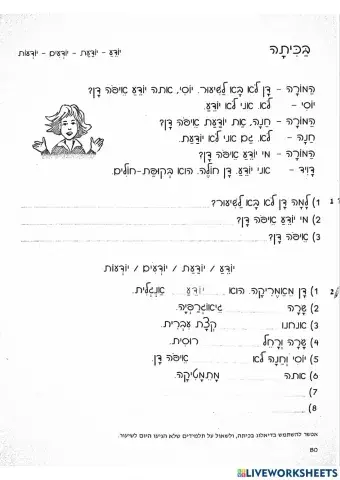 בַּכִּיתָה
יוֹדֵעַ - יוֹדַעַת - יוֹדְעִים - יוֹדְעוֹת
הַמּוֹרָה - דָן לֹא בָּא לַשִּׁיעוּר. יוֹסִי, אַתָּה יוֹדֵעַ אֵיפֹה דָן?
יוֹסִי - לֹא. אֲנִי לֹא יוֹדֵעַ.
הַמּוֹרָה - חַנָּה, אַתְּ יוֹדַעַת אֵיפֹה דָן?
חַנָּה - לֹא. גַּם אֲנִי לֹא יוֹדַעַת.
הַמּוֹרָה - מִי יוֹדֵעַ אֵיפֹה דָן?
דָוִיד - אֲנִי יוֹדֵעַ. דָן חוֹלֶה. הוּא בְּקוּפַּת-חוֹלִים.
1 1) לָמָּה דָן לֹא בָּא לַשִּׁיעוּר?
2) מִי יוֹדֵעַ אֵיפֹה דָן?
3) אֵיפֹה דָן?
יוֹדֵעַ / יוֹדַעַת / יוֹדְעִים / יוֹדְעוֹת
2 1) דָן מֵאָמֶרִיקָה. הוּא יוֹדֵעַ אַנְגְּלִית.
2) שָׂרָה גֵּיאוֹגְרַפְיָה.
3) אֲנַחְנוּ קְצָת עִבְרִית.
4) שָׂרָה וְרָחֵל רוּסִית.
5) יוֹסִי וְחַנָּה לֹא אֵיפֹה דָן.
6) אַתָּה מָתֵמָטִיקָה.
7)
8)
אפשר להשתמש בדיאלוג בכיתה, ולשאול על תלמידים שלא הגיעו היום לשיעור.
80
LIVEWORKSHEETS